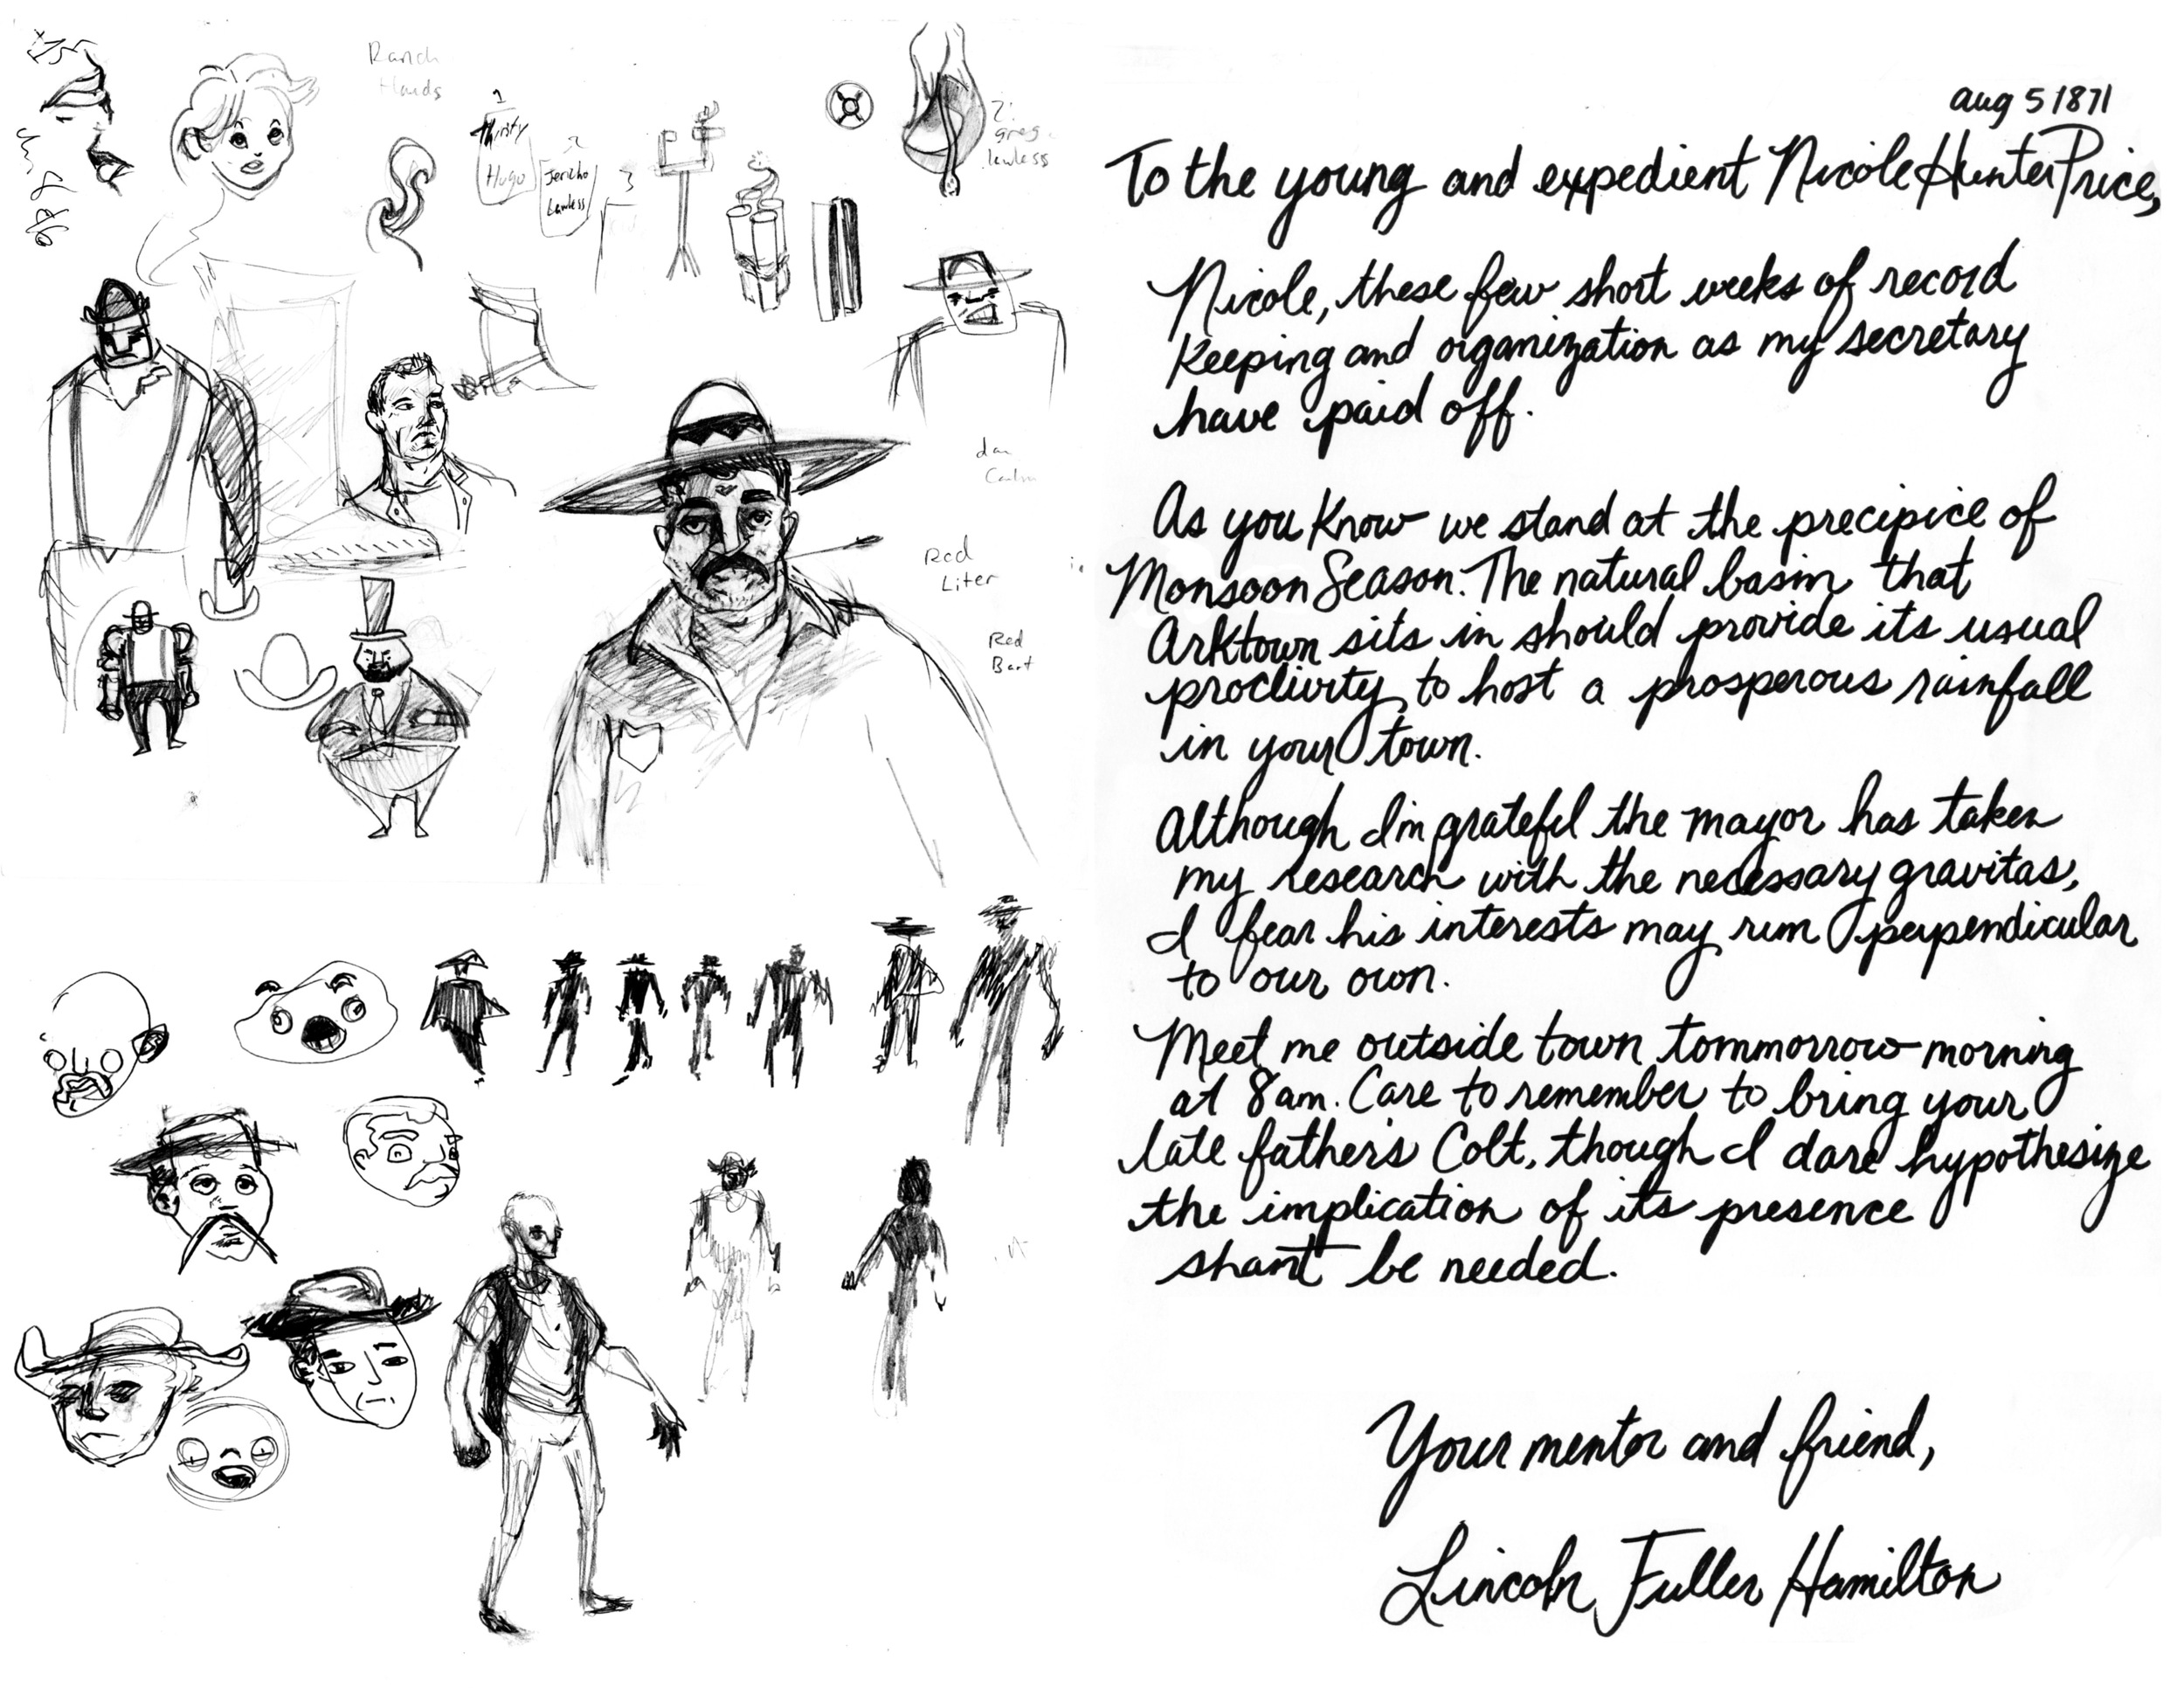 Ranch
Hands
1
Thirsty
Hugo
2
Jericho
Lawless
3
2:
greg
lawless
dan
Red
Liter
Red
Bart
aug 5 1871
To the young and expedient Nicole Hunter Price,
Nicole, these few short weeks of record
Keeping and organization as my secretary
have paid off.
As you Know we stand at the precipice of
Monsoon Season. The natural basin that
Arktown sits in should provide its usual
proclivity to host a prosperous rainfall
in your town.
Although I'm grateful the mayor has taken
my research with the necessary gravitas,
I fear his interests may run perpendicular
to our own.
Meet me outside town tommorrow morning
at 8am. Care to remember to bring your
late father's Colt, though I dare hypothesize
the implication of its presence
shan't be needed.
Your mentor and friend,
Lincoln Fuller Hamilton